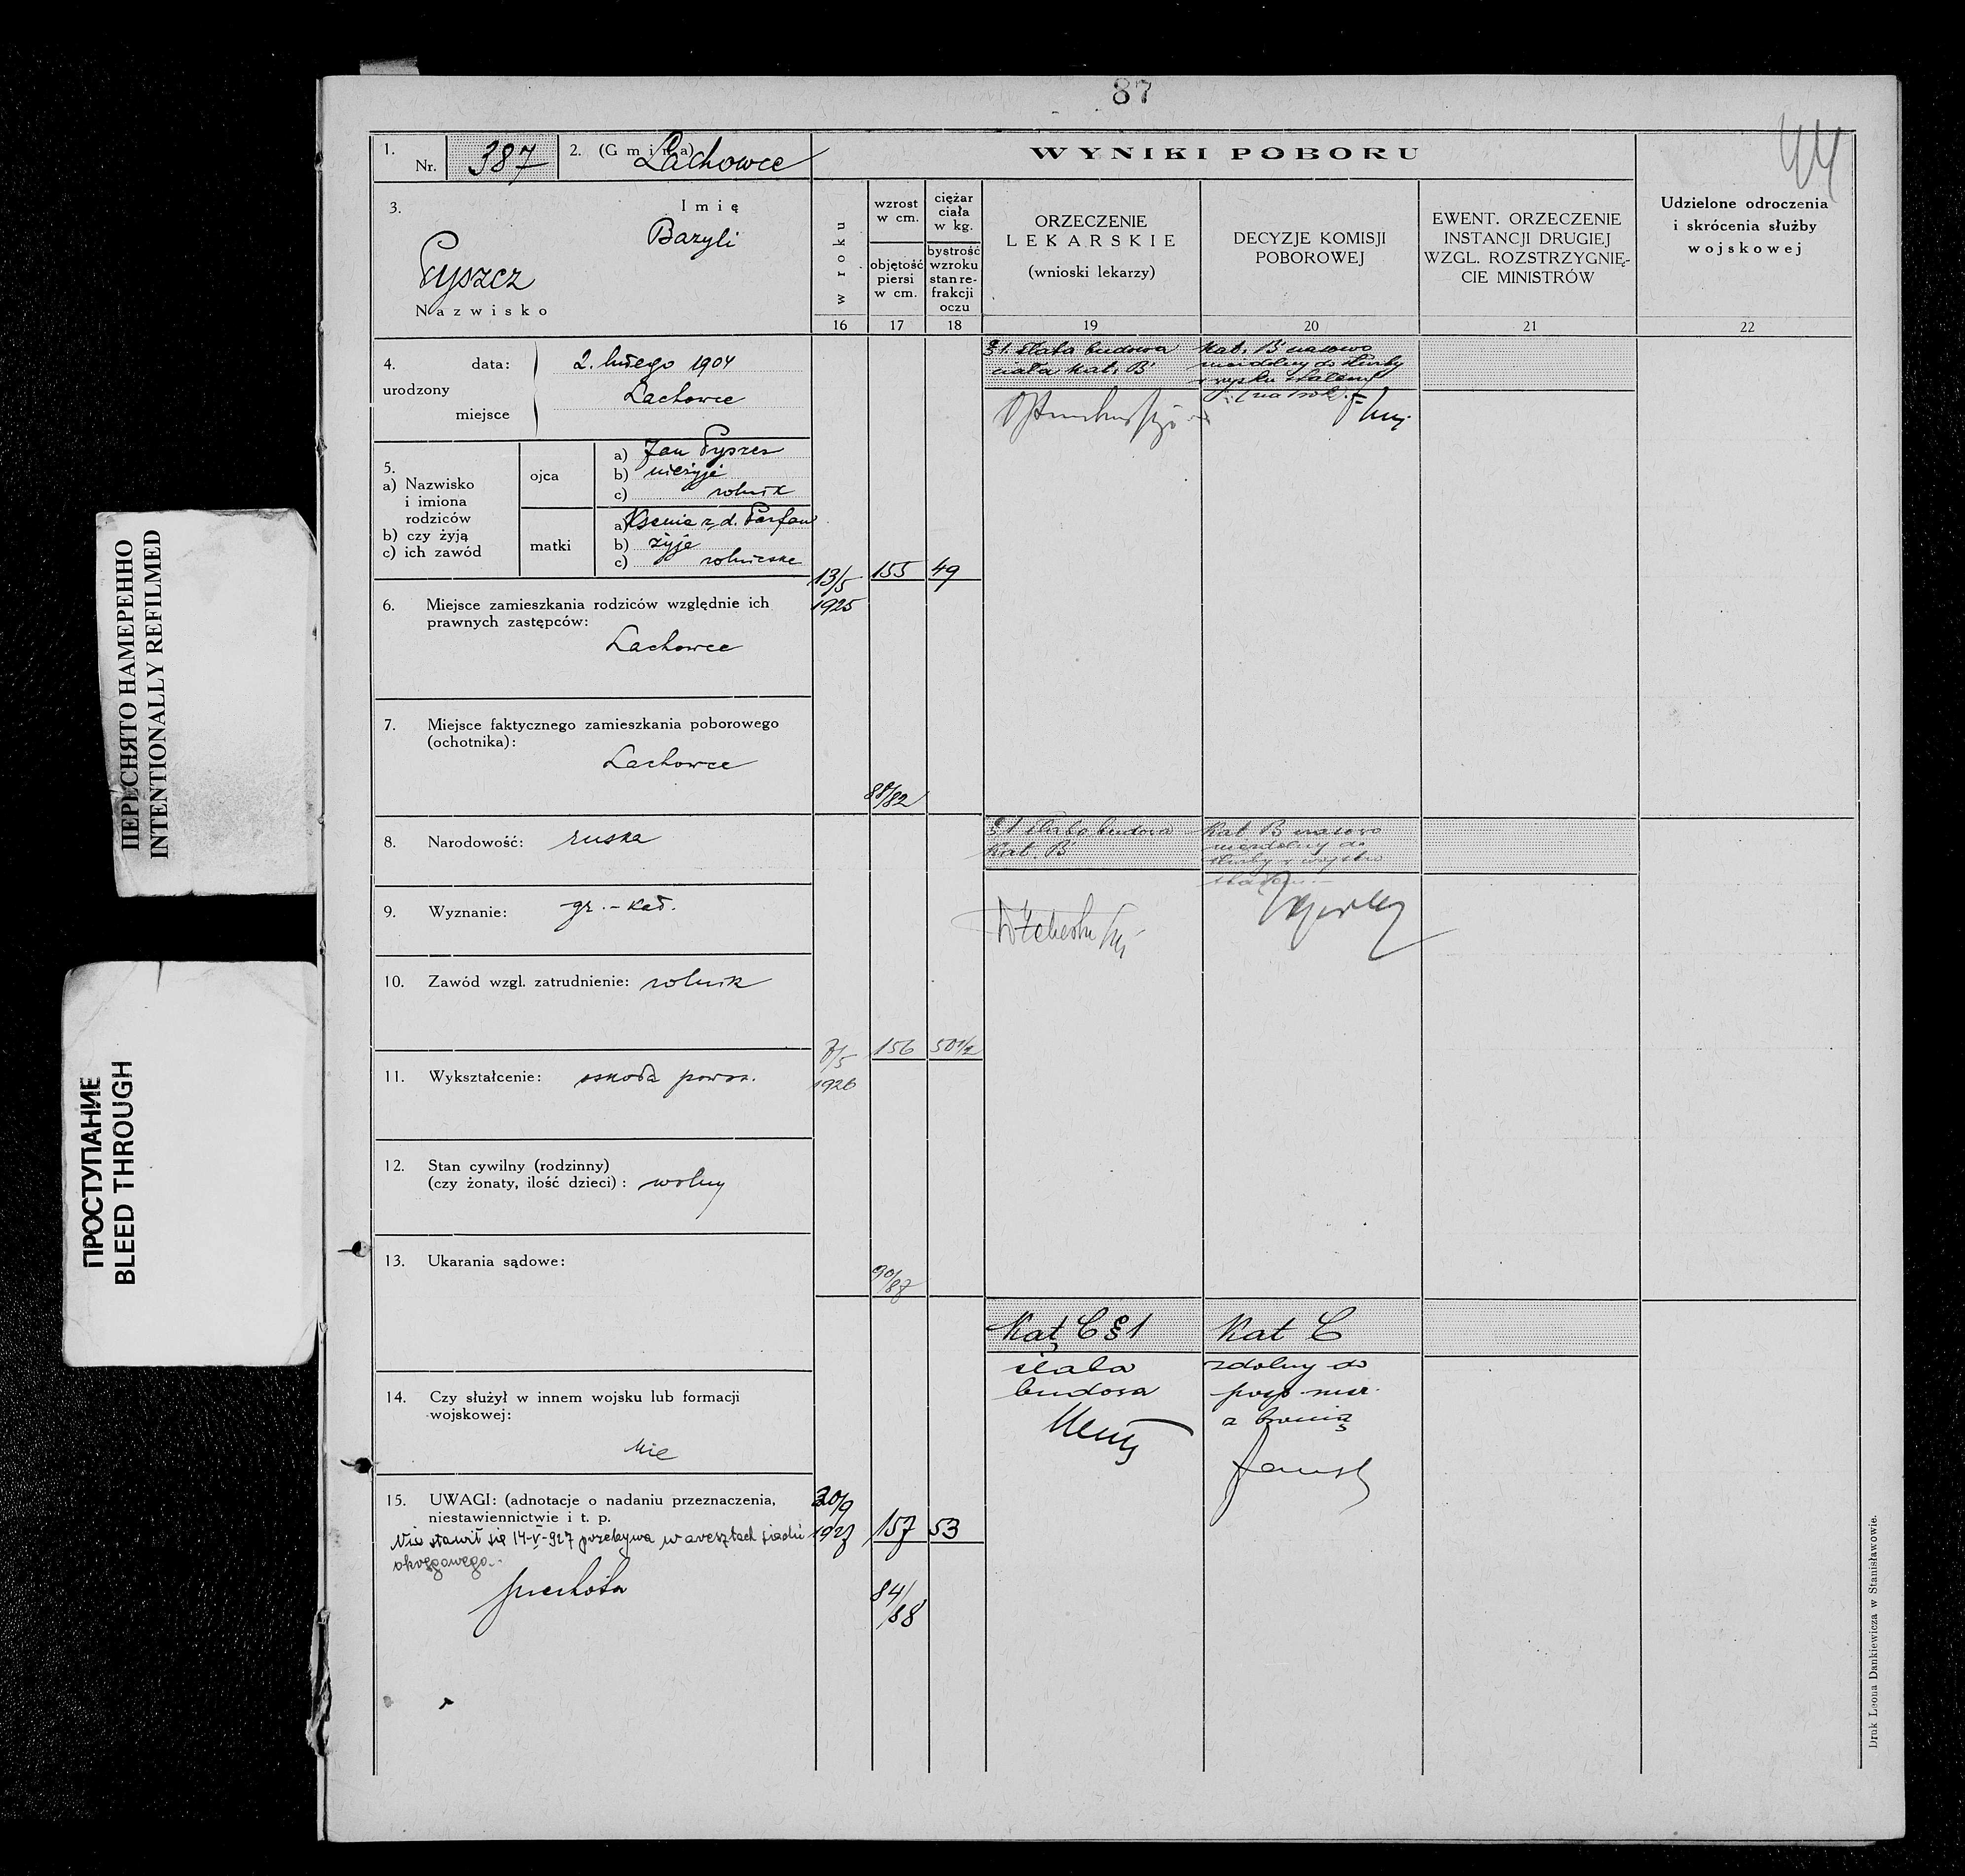 87
44
1.
Nr. 387
2. (Gmina) Lachowce
WYNIKI POBORU
3.
Imię
Bazyli
Pyszcz
Nazwisko
w roku
wzrost
w cm.
objętość
piersi
w cm.
ciężar
ciała
w kg.
bystrość
wzroku
stan re-
frakcji
oczu
ORZECZENIE
LEKARSKIE
(wnioski lekarzy)
DECYZJE KOMISJI
POBOROWEJ
EWENT. ORZECZENIE
INSTANCJI DRUGIEJ
WZGL. ROZSTRZYGNIĘ-
CIE MINISTRÓW
Udzielone odroczenia
i skrócenia służby
wojskowej
16 17 18 19 20 21 22
4.
urodzony
data: 2. lutego 1904
miejsce Lachowce
5.
a) Nazwisko
i imiona
rodziców
b) czy żyją
c) ich zawód
ojca
a) Jan Pyszcz
b) nieżyje
c) rolnik
matki
a) Ksenia z d. Parfan
b) żyje
c) rolniczka
6. Miejsce zamieszkania rodziców względnie ich
prawnych zastępców:
Lachowce
7. Miejsce faktycznego zamieszkania poborowego
(ochotnika):
Lachowce
8. Narodowość: ruska
9. Wyznanie: gr.-kat.
10. Zawód wzgl. zatrudnienie: rolnik
11. Wykształcenie: szkoła powsz.
12. Stan cywilny (rodzinny)
(czy żonaty, ilość dzieci): wolny
13. Ukarania sądowe:
14. Czy służył w innem wojsku lub formacji
wojskowej:
Nie
15. UWAGI: (adnotacje o nadaniu przeznaczenia,
niestawiennictwie i t. p.
Nie stawił się 14-V-927 przebywa w aresztach sądu
okręgowego.
piechota
13/5
1925
155
49
88/82
§1. słaba budowa
ciała kat. B
Kat. B czasowo
niezdolny do służby
w wojsku stałem
(na 1 rok).
7/5
1926
156
50 1/2
90/87
§1 słaba budowa
Kat. B
Kat. B czasowo
niezdolny do
służby w wojsku
stałem
30/9
1927
157
53
84/88
Kat C §1
słaba
budowa
Kat C
zdolny do
posp. rusz.
z bronią
Druk Leona Dankiewicza w Stanisławowie.
ПЕРЕСНЯТО НАМЕРЕННО
INTENTIONALLY REFILMED
ПРОСТУПАНИЕ
BLEED THROUGH